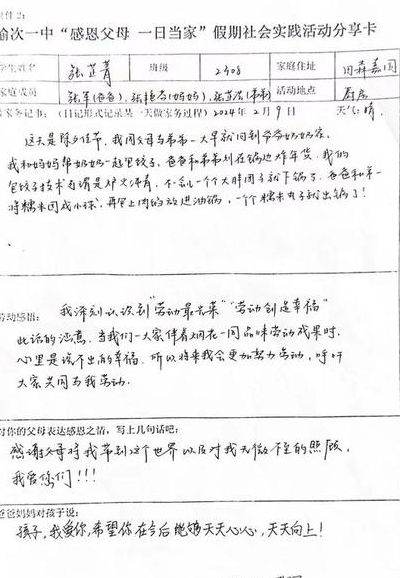 附件2:
榆次一中“感恩父母 一日当家”假期社会实践活动分享卡
学生姓名 张芷菁 班级 2308 家庭住址 田森嘉园
家庭成员 张军(爸爸), (妈妈), (弟弟) 活动地点 厨房
家务记事:(日记形式记录某一天做家务过程) 2024年2月9日 天气:晴
这天是除夕佳节,我同父母与弟弟一大早就回到爷爷奶奶家,
我和妈妈帮奶奶一起包饺子,爸爸和弟弟则在锅边炸年货。我们
包饺子技术可谓是炉火纯青,不一会儿一个个大胖团子就下锅了。爸爸和弟一
将糯米团成小球,再包上肉的放进油锅,一个个糯米丸子就出锅了!
劳动感悟: 我深刻认识到“劳动最光荣”“劳动创造幸福”
此话的涵意,当我们一大家伴着烟花一同品味劳动成果时,
心里是说不出的幸福。所以将来我会更加努力劳动,呼吁
大家共同为我劳动。
对你的父母表达感恩之情,写上几句话吧:
感谢父母将我带到这个世界以及对我无微不至的照顾,
我爱你们!!!
爸爸妈妈对孩子说:
孩子,我爱你,希望你在今后能够天天开心,天天向上!